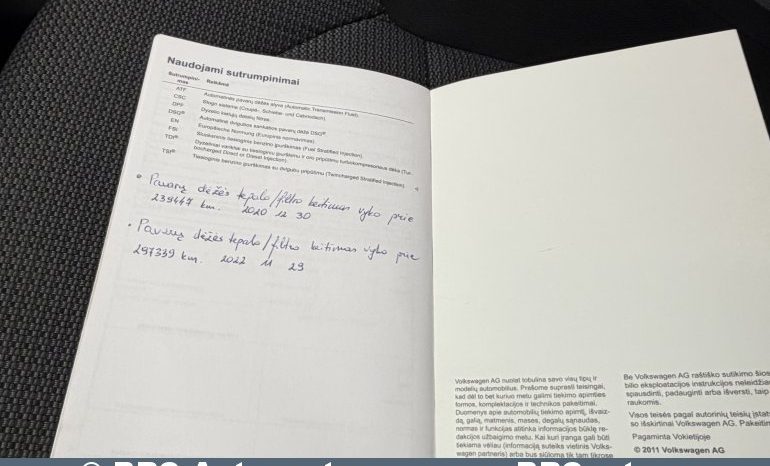 Naudojami sutrumpinimai
Sutrumpini-
mas
Reikšmė
ATF
Automatinės pavarų dėžės alyva (Automatic Transmission Fluid)
CSC
Stogo sistema (Coupé-, Schiebe- und Cabriodach)
DPF
Dyzelio kietųjų dalelių filtras
DSG®
Automatinė dvigubos sankabos pavarų dėžė DSG®
EN
Europäische Normung (Europinis normavimas)
FSI
Sluoksninis tiesioginis benzino įpurškimas (Fuel Stratified Injection)
TDI®
Dyzeliniai varikliai su tiesioginiu įpurškimu ir oro pripūtimu turbokompresoriaus dėka (Tur-
bocharged Direct or Diesel Injection)
TSI®
Tiesioginis benzino įpurškimas su dvigubu pripūtimu (Twincharged Stratified Injection)
• Pavarų dėžės tepalo/filtro keitimas vyko prie
239447 km. 2020 12 30
• Pavarų dėžės tepalo/filtro keitimas vyko prie
297339 km. 2022 11 29
Volkswagen AG nuolat tobulina savo visų tipų ir
modelių automobilius. Prašome suprasti teisingai,
kad dėl to bet kuriuo metu galimi tiekimo apimties
formos, komplektacijos ir technikos pakeitimai.
Duomenys apie automobilių tiekimo apimtį, išvaiz-
dą, galią, matmenis, mases, degalų sąnaudas,
normas ir funkcijas atitinka informacijos būklę re-
dakcijos užbaigimo metu. Kai kuri įranga gali būti
tiekiama vėliau (informaciją suteiks vietinis Volks-
wagen partneris) arba bus siūloma tik tam tikrose
Be Volkswagen AG raštiško sutikimo šios
bilio eksploatacijos instrukcijos neleidžia
spausdinti, padauginti arba išversti, taip
raukomis.
Visos teisės pagal autorinių teisių įstat
so išskirtinai Volkswagen AG. Pakeitim
Pagaminta Vokietijoje
© 2011 Volkswagen AG